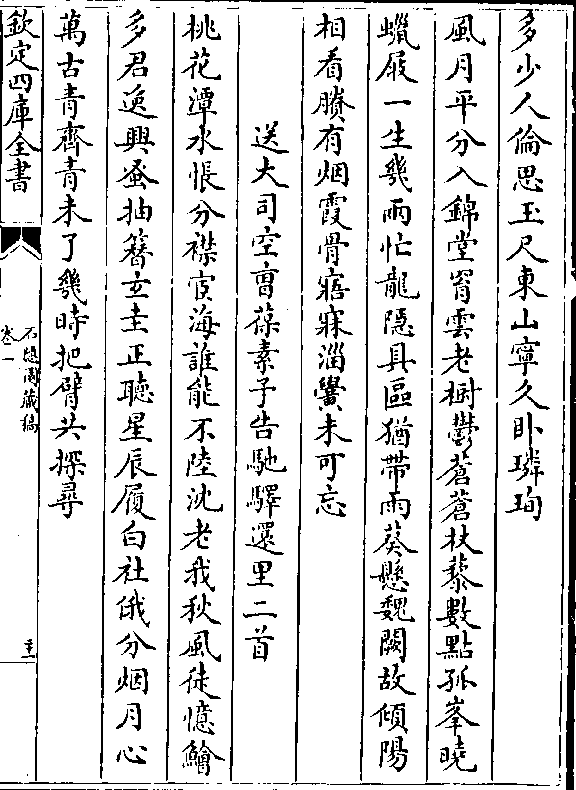 多少人倫思玉尺東山寧久臥璘珣
風月平分入錦堂窅雲老樹鬱蒼蒼杖藜數點孤峯曉
蠟屐一生幾兩忙龍隱具區猶帶雨葵懸魏闕故傾陽
相看賸有烟霞骨寤寐淄黌未可忘
送大司空曺葆素予告馳驛還里二首
桃花潭水悵分襟宦海誰能不陸沈老我秋風徒憶鱠
多君逸興蚤抽簪玄圭正聴星辰履白社俄分烟月心
萬古青齊青未了幾時把臂共探尋
欽定四庫全書
石隱園藏稿
卷一